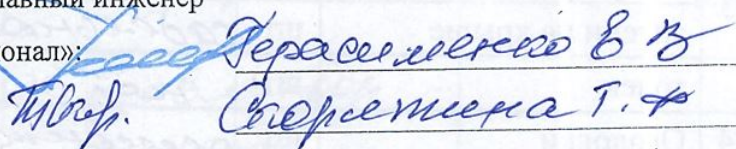 лавный инженер
онал»: Герасименко Е В
Скоржина Т.Ф